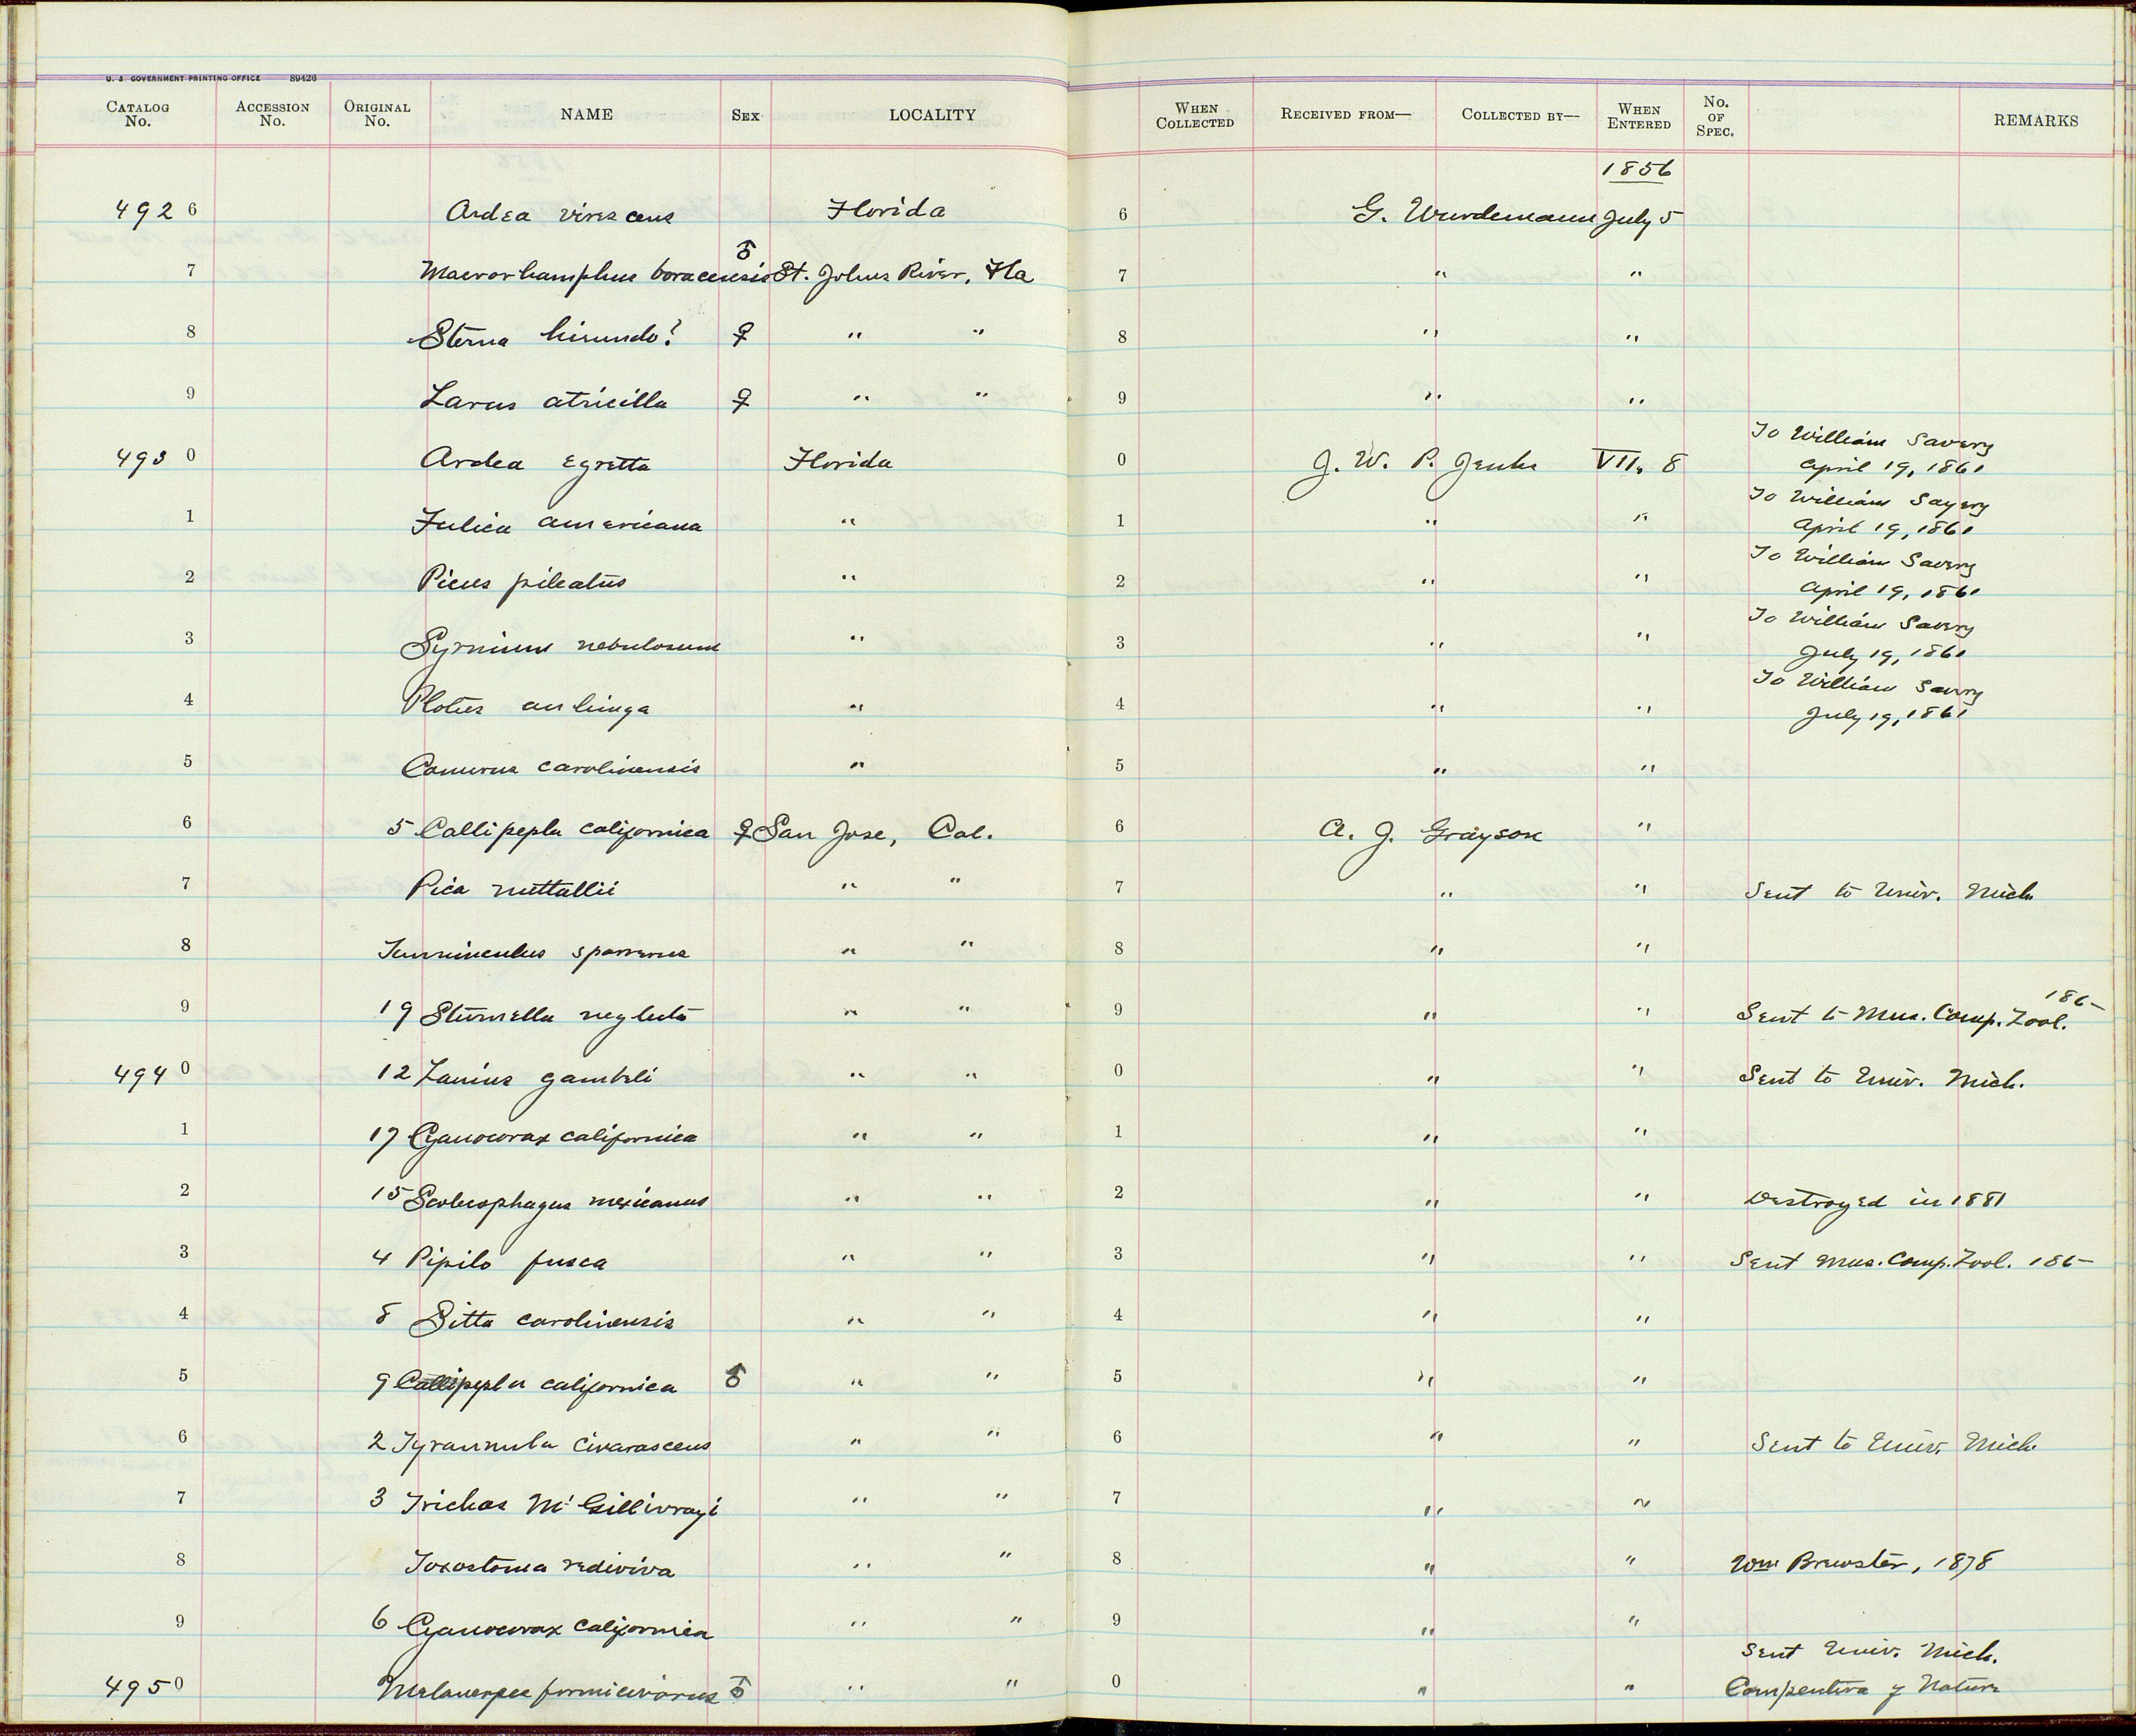 U. S. GOVERNMENT PRINTING OFFICE 89426
CATALOG No. ACCESSION No. ORIGINAL No. NAME SEX LOCALITY WHEN COLLECTED RECEIVED FROM— COLLECTED BY— WHEN ENTERED No. OF SPEC. REMARKS
1856
4926 Ardea virescens Florida 6 G. Wurdemann July 5
7 Macrorhamphus ♂ St. Johns River, Fla 7 " "
8 Sterna hirundo? ♀ " " 8 " "
9 Larus atricilla ♀ " " 9 " "
4930 Ardea egretta Florida 0 J. W. P. Jenks VII, 8 To William Savery April 19, 1861
1 Fulica americana " 1 " " To William Savery April 19, 1861
2 Picus pileatus " 2 " " To William Savery April 19, 1861
3 Syrnium nebulosum " 3 " " To William Savery July 19, 1861
4 Plotus anhinga " 4 " " To William Savery July 19, 1861
5 Conurus carolinensis " 5 " "
6 5 Callipepla californica ♀ San Jose, Cal. 6 A. J. Grayson "
7 Pica nuttallii " " 7 " " Sent to Univ. Mich
8 Tinnunculus sparverius " " 8 " "
9 19 Sturnella neglecta " " 9 " " Sent to Mus. Comp. Zool. 186-
4940 12 Lanius gambeli " " 0 " " Sent to Univ. Mich.
1 17 Cyanocorax californica " " 1 " "
2 15 Scolecophagus mexicanus " " 2 " " Destroyed in 1881
3 4 Pipilo fusca " " 3 " " Sent Mus. Comp. Zool. 186-
4 8 Sitta carolinensis " " 4 " "
5 9 Callipepla californica ♂ " " 5 " "
6 2 Tyrannula " " 6 " " Sent to Univ. Mich
7 3 Trichas McGillivrayi " " 7 " "
8 Toxostoma rediviva " " 8 " " Wm Brewster, 1878
9 6 Cyanocorax californica " " 9 " "
4950 Melanerpes formicivorus ♂ " " 0 " " Sent Univ. Mich.